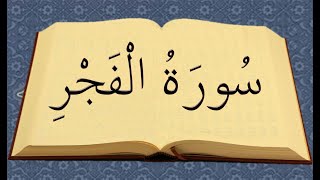 سُورَةُ الْفَجْرِ